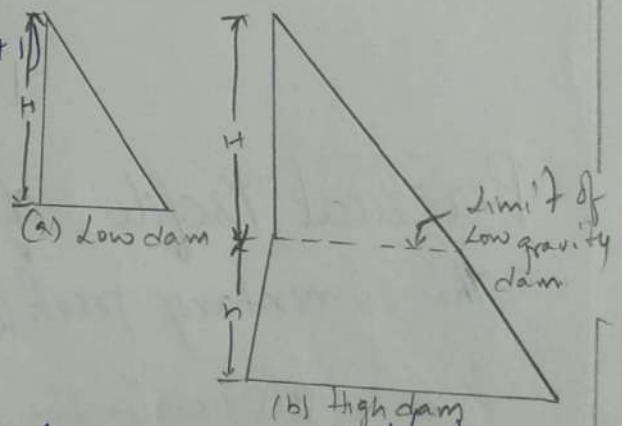 +1)
H
(a) Low dam
H
h
Limit of
Low gravity
dam
(b) High dam